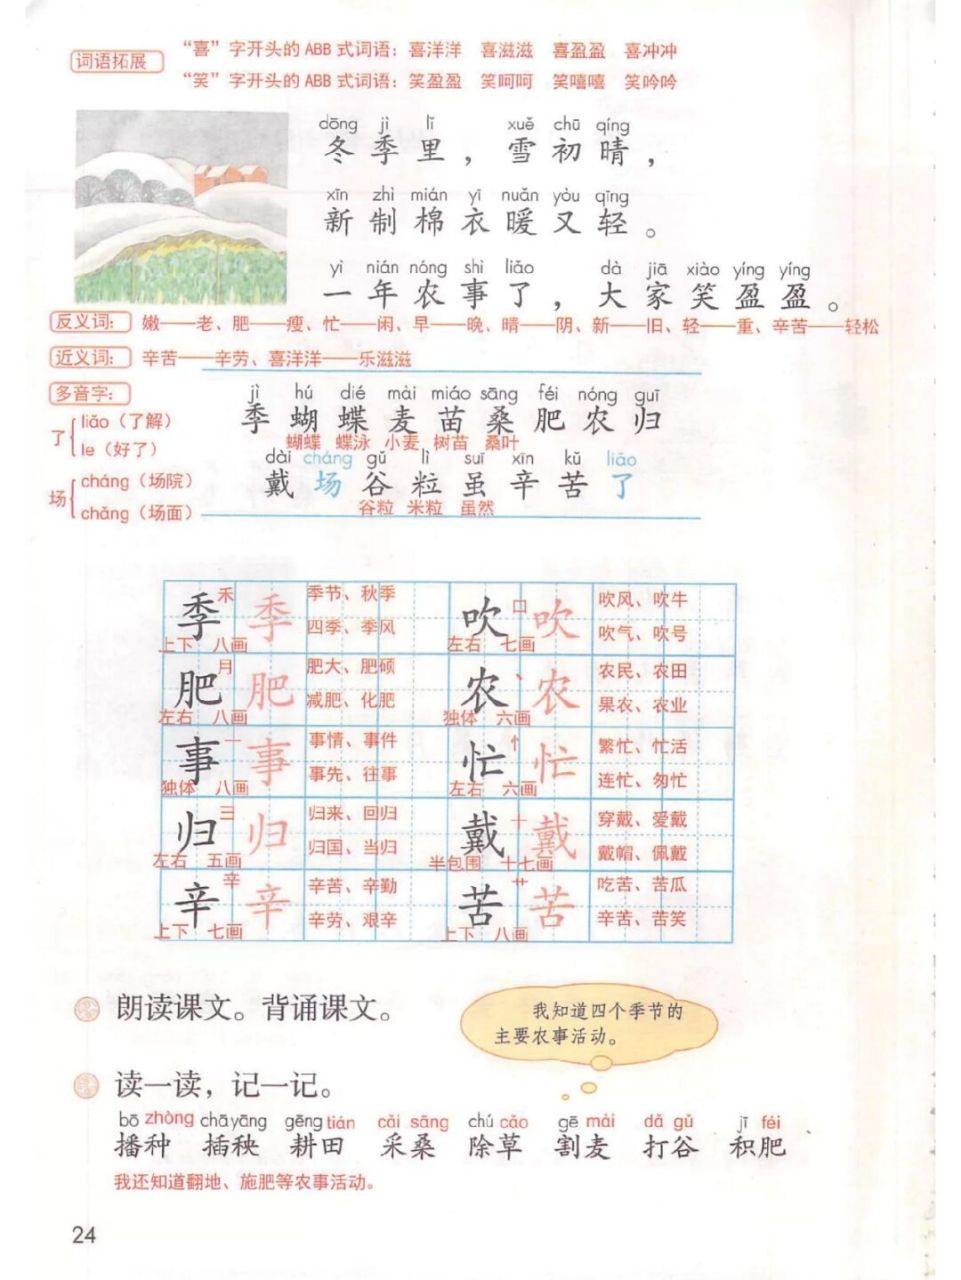 词语拓展
“喜”字开头的 ABB 式词语：喜洋洋 喜滋滋 喜盈盈 喜冲冲
“笑”字开头的 ABB 式词语：笑盈盈 笑呵呵 笑嘻嘻 笑吟吟
dōng jì lǐ xuě chū qíng
冬季里，雪初晴，
xīn zhì mián yī nuǎn yòu qīng
新制棉衣暖又轻。
yì nián nóng shì liǎo dà jiā xiào yíng yíng
一年农事了，大家笑盈盈。
反义词： 嫩——老、肥——瘦、忙——闲、早——晚、晴——阴、新——旧、轻——重、辛苦——轻松
近义词： 辛苦——辛劳、喜洋洋——乐滋滋
多音字：
了
liǎo（了解）
le（好了）
场
cháng（场院）
chǎng（场面）
jì hú dié mài miáo sāng féi nóng guī
季 蝴 蝶 麦 苗 桑 肥 农 归
蝴蝶 蝶泳 小麦 树苗 桑叶
dài cháng gǔ lì suī xīn kǔ liǎo
戴 场 谷 粒 虽 辛 苦 了
谷粒 米粒 虽然
季 禾 季 季节、秋季
四季、季风
上下 八画
吹 口 吹 吹风、吹牛
吹气、吹号
左右 七画
肥 月 肥 肥大、肥硕
减肥、化肥
左右 八画
农 丶 农 农民、农田
果农、农业
独体 六画
事 一 事 事情、事件
事先、往事
独体 八画
忙 忄 忙 繁忙、忙活
连忙、匆忙
左右 六画
归 彐 归 归来、回归
归国、当归
左右 五画
戴 十 戴 穿戴、爱戴
戴帽、佩戴
半包围 十七画
辛 辛 辛 辛苦、辛勤
辛劳、艰辛
上下 七画
苦 艹 苦 吃苦、苦瓜
辛苦、苦笑
上下 八画
朗读课文。背诵课文。
我知道四个季节的
主要农事活动。
读一读，记一记。
bō zhòng chā yāng gēng tián cǎi sāng chú cǎo gē mài dǎ gǔ jī féi
播种 插秧 耕田 采桑 除草 割麦 打谷 积肥
我还知道翻地、施肥等农事活动。
24